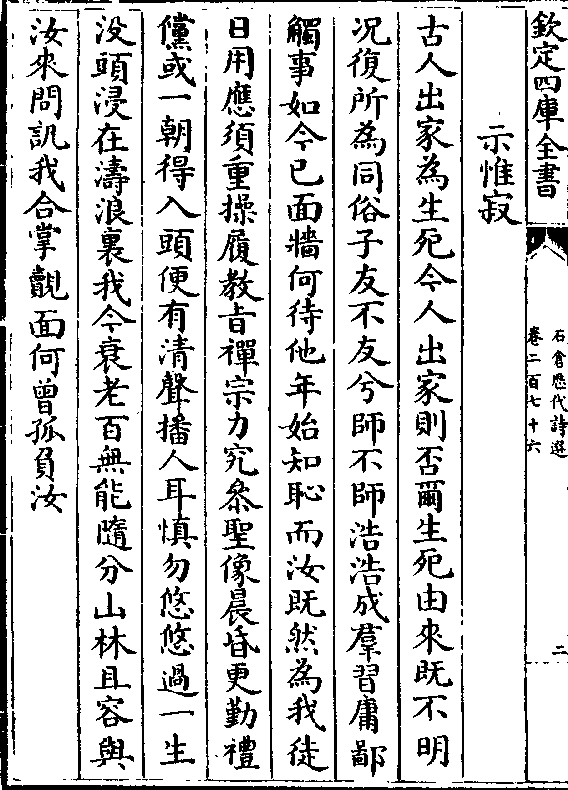 欽定四庫全書
石倉歷代詩選
卷二百七十六
二
示惟寂
古人出家為生死今人出家則否爾生死由來既不明
况復所為同俗子友不友兮師不師浩浩成羣習庸鄙
觸事如今已面牆何待他年始知恥而汝既然為我徒
日用應須重操履教旨禪宗力究叅聖像晨昏更勤禮
儻或一朝得入頭便有清聲播人耳慎勿悠悠過一生
没頭浸在濤浪裏我今衰老百無能隨分山林且容與
汝來問訊我合掌覿面何曾孤負汝